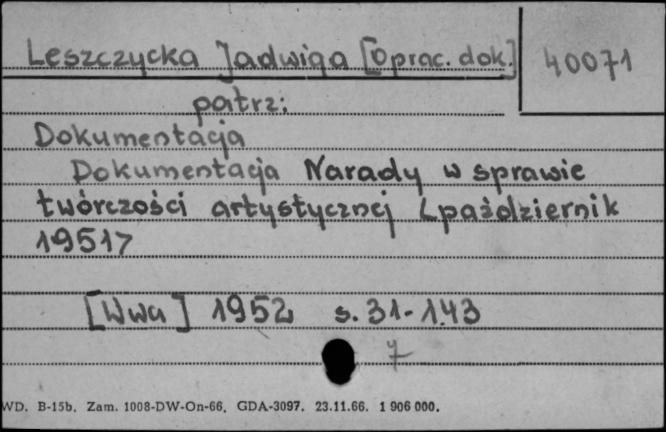 Leszczycka Jadwiga [Oprac. dok.]
40071
patrz:
Dokumentacja
Dokumentacja Narady w sprawie
twórczości artystycznej [październik
1951]
[Wwa] 1952 s. 31-143
7
WD. B-15b. Zam. 1008-DW-On-66. GDA-3097. 23.11.66. 1 906 000.